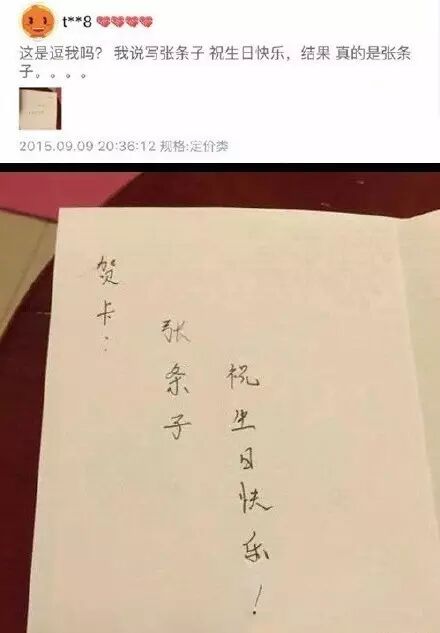 t**8
这是逗我吗? 我说写张条子 祝生日快乐，结果 真的是张条
子。。。。
2015.09.09 20:36:12 规格:定价类
贺卡：
张条子
祝生日快乐！